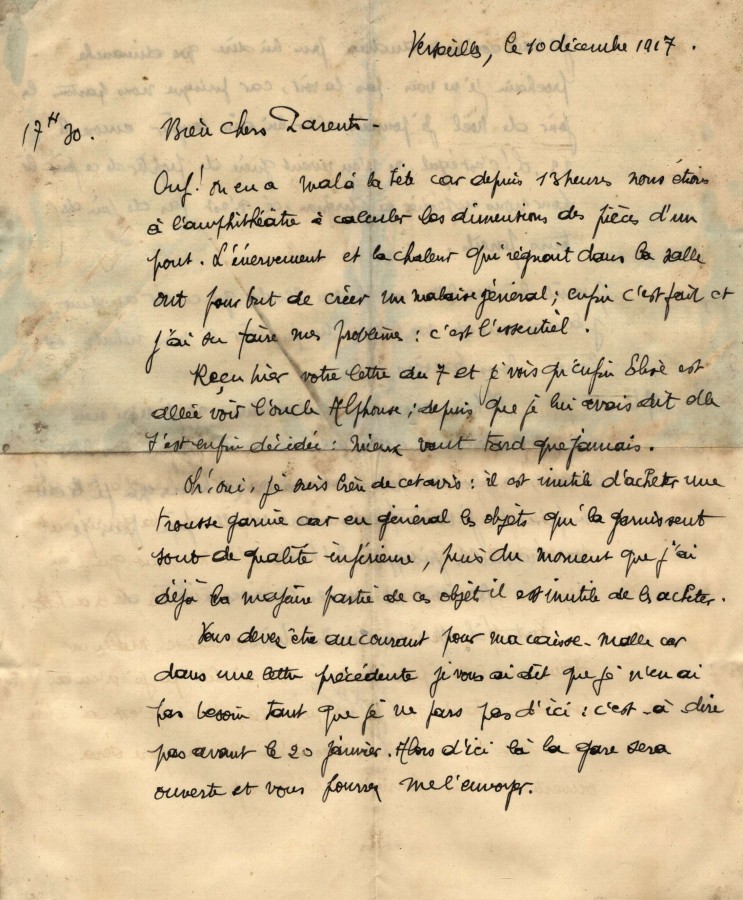 Versailles, le 10 décembre 1917.
17H30.
Bien chers Parents -
Ouf! on en a mal à la tête car depuis 13 heures nous étions
à l'amphithéâtre à calculer les dimensions des pièces d'un
pont. L'énervement et la chaleur qui régnait dans la salle
ont pour but de créer un malaise général; enfin c'est fait et
j'ai su faire mes problèmes : c'est l'essentiel.
Reçu hier votre lettre du 7 et je vois qu'enfin est
allée voir l'oncle Alphonse; depuis que je lui avais dit elle
s'est enfin décidée : mieux vaut tard que jamais.
Oh! oui, je suis bien de cet avis : il est inutile d'acheter une
trousse garnie car en général les objets qui la garnissent
sont de qualité inférieure, puis du moment que j'ai
déjà la majeure partie de ces objets il est inutile de les acheter.
Vous devez être au courant pour ma caisse-malle car
dans une lettre précédente je vous ai dit que je n'en ai
pas besoin tant que je ne pars pas d'ici : c'est-à-dire
pas avant le 20 janvier. Alors d'ici là la gare sera
ouverte et vous pourrez me l'envoyer.